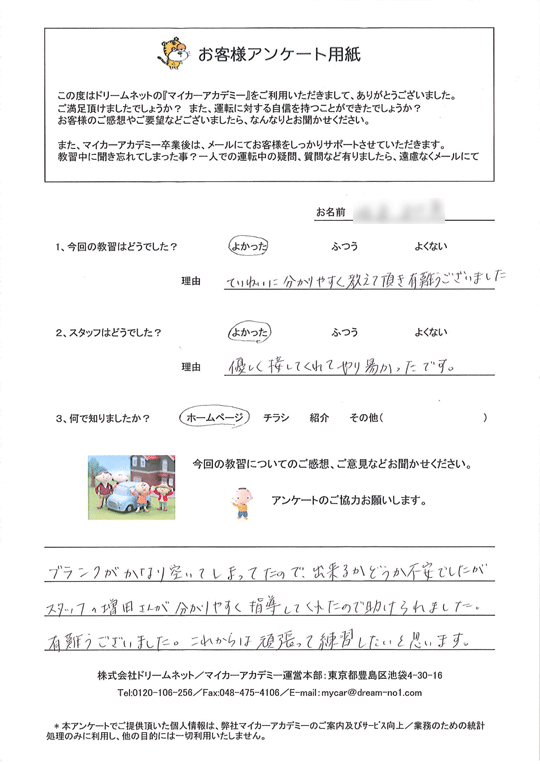 お客様アンケート用紙
この度はドリームネットの『マイカーアカデミー』をご利用いただきまして、ありがとうございました。
ご満足頂けましたでしょうか？ また、運転に対する自信を持つことができたでしょうか？
お客様のご感想やご要望などございましたら、なんなりとお聞かせください。
また、マイカーアカデミー卒業後は、メールにてお客様をしっかりサポートさせていただきます。
教習中に聞き忘れてしまった事？一人での運転中の疑問、質問など有りましたら、遠慮なくメールにて
お名前
1、今回の教習はどうでした？ よかった ふつう よくない
理由 ていねいに分かりやすく教えて頂き有難うございました
2、スタッフはどうでした？ よかった ふつう よくない
理由 優しく接してくれてやり易かったです。
3、何で知りましたか？ ホームページ チラシ 紹介 その他( )
今回の教習についてのご感想、ご意見などお聞かせください。
アンケートのご協力お願いします。
ブランクがかなり空いてしまってたので、出来るかどうか不安でしたが
スタッフの増田さんが分かりやすく指導してくれたので助けられました。
有難うございました。これからは頑張って練習したいと思います。
株式会社ドリームネット／マイカーアカデミー運営本部：東京都豊島区池袋4-30-16
Tel:0120-106-256／Fax:048-475-4106／E-mail:mycar@dream-no1.com
＊本アンケートでご提供頂いた個人情報は、弊社マイカーアカデミーのご案内及びサービス向上／業務のための統計
処理のみに利用し、他の目的には一切利用いたしません。